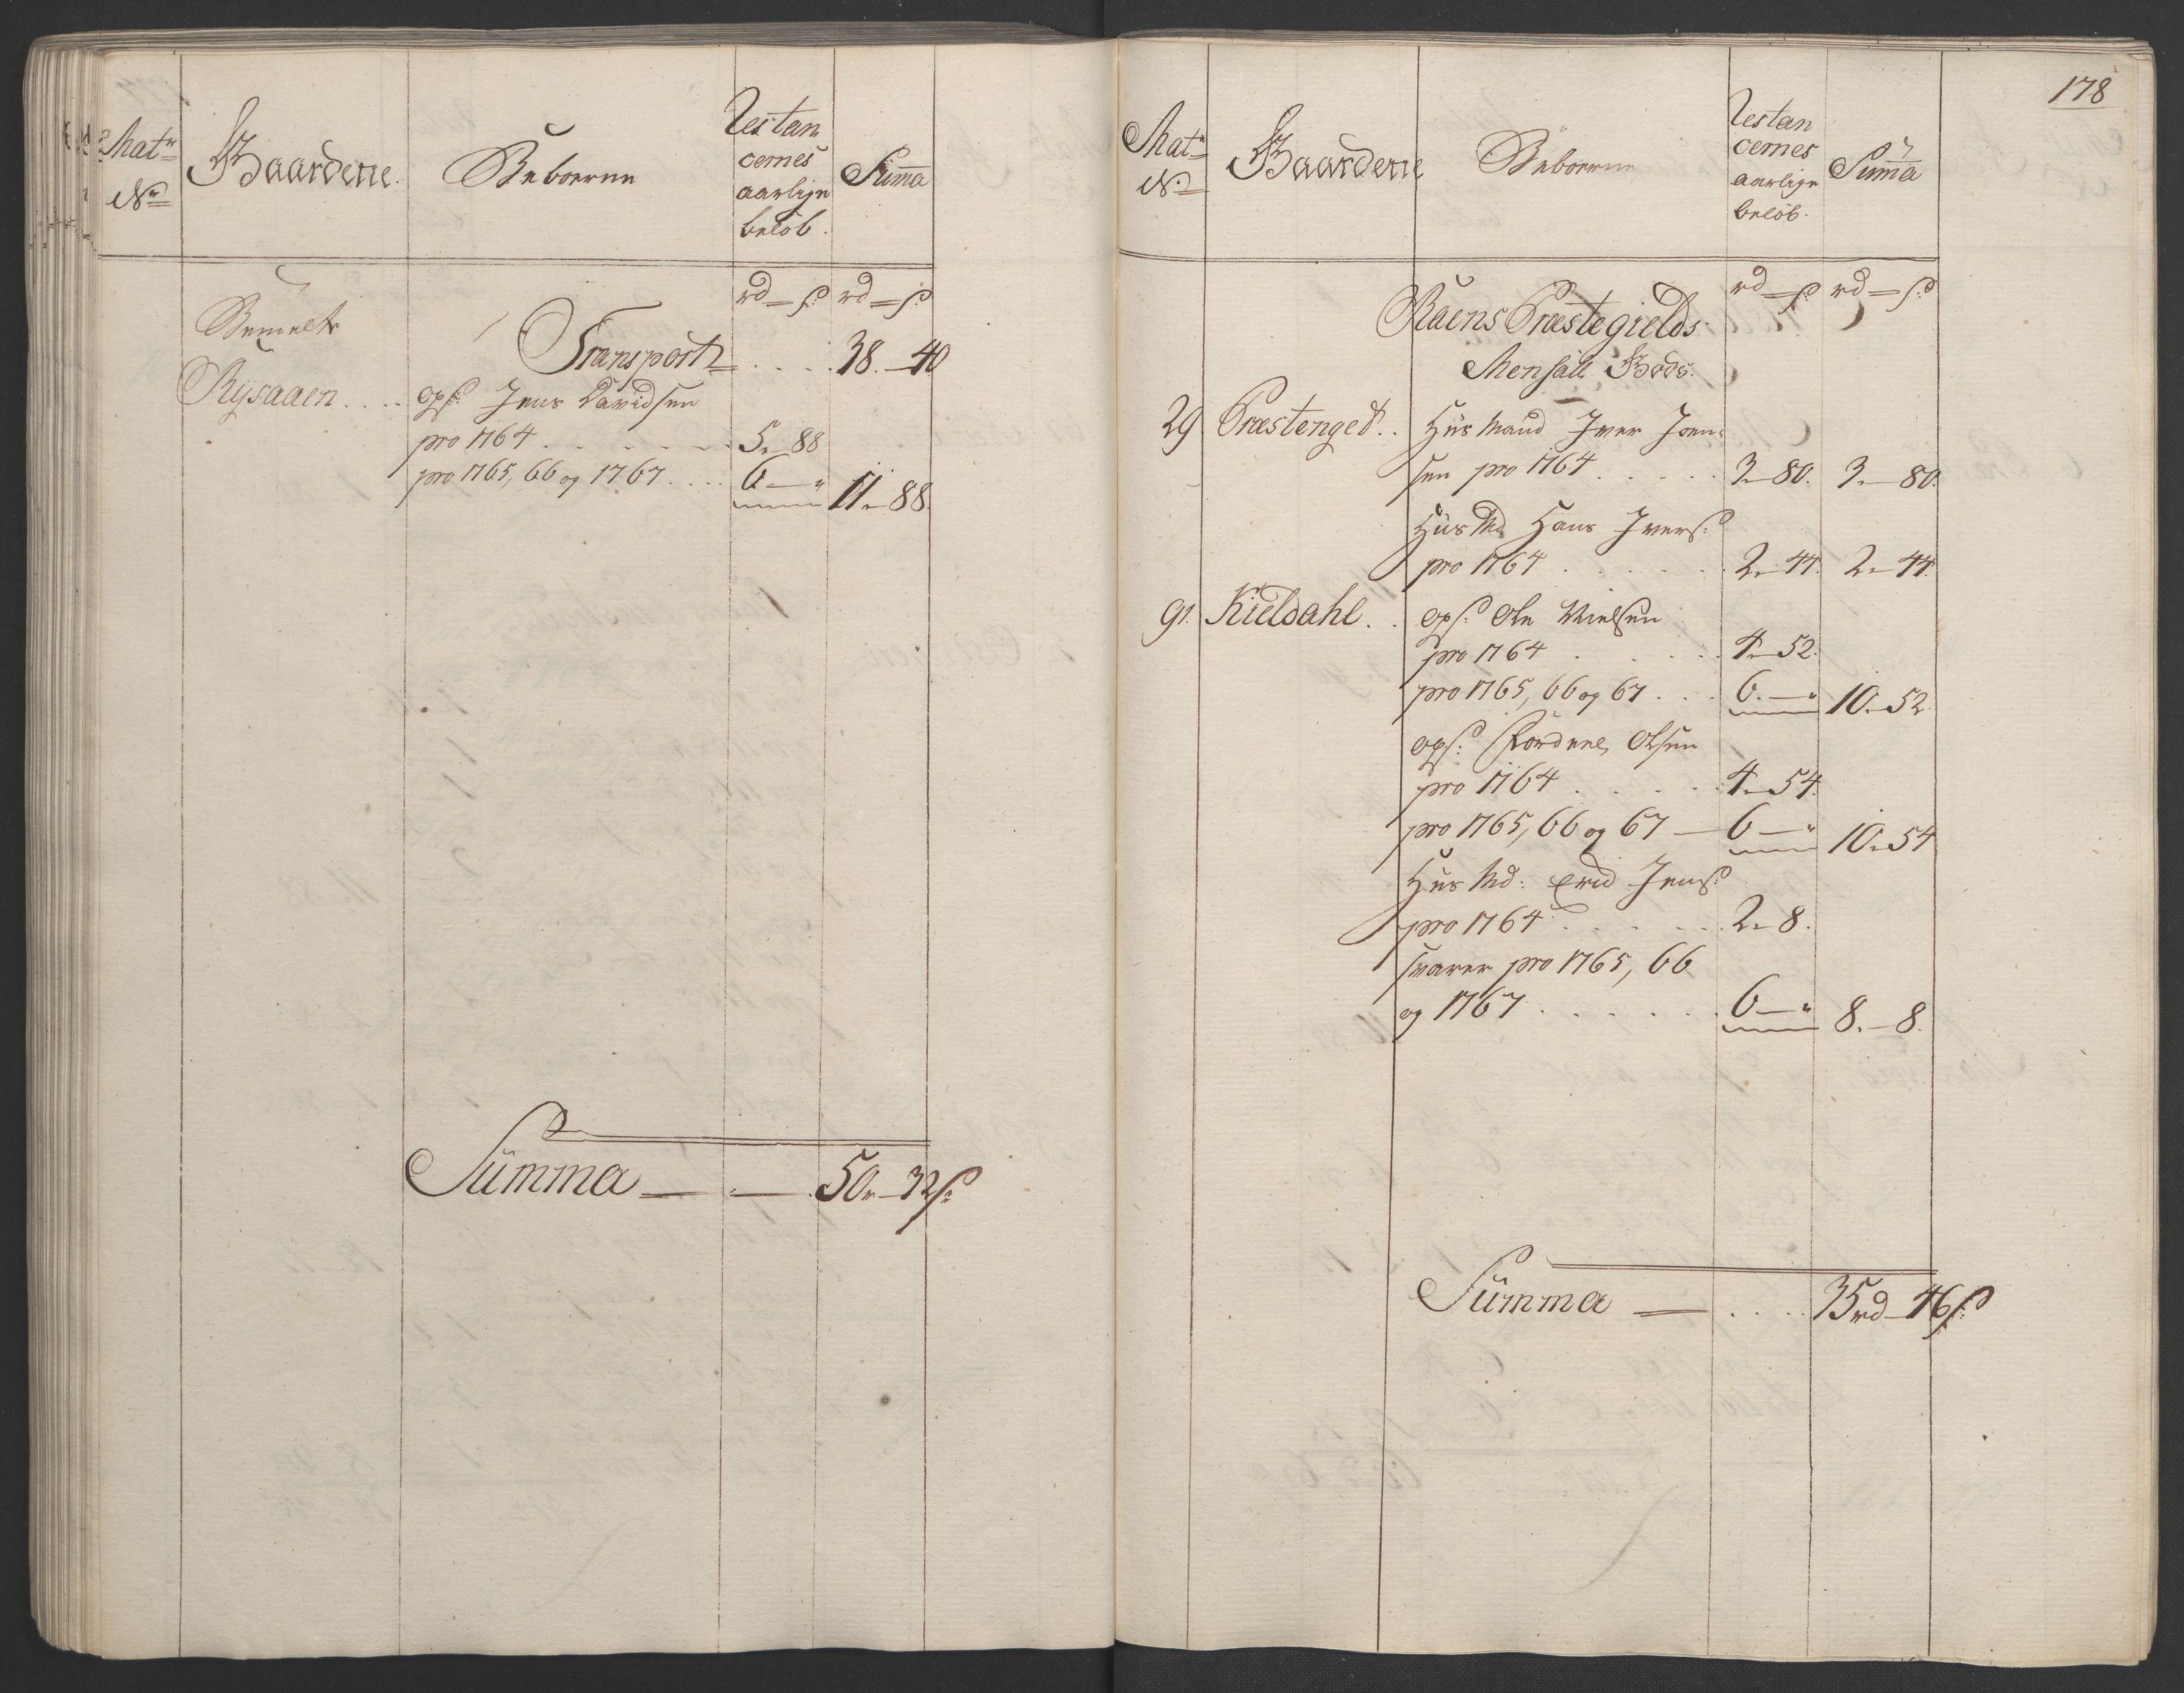 Matr
No
Gaardene.
Beboerne
Restan
cernes
aarlige
beløb.
Summa
rd — s: rd — s:
Bemelte
Transport . . . . 38. — 40
Rÿsaaen . . . . ops: Jens Davidsen
pro 1764 . . . . . . 5. — 88
pro 1765, 66 og 1767 . . . . 6 — " 11. — 88.
Summa — . — . 50. — 32 s:
178
Matr
No
Gaardene
Beboerne
Restan
cernes
aarlige
beløb.
Summa
rd — s: rd — s:
Raens Præstegields
Mensall Gods.
29 Præstenget . . Huusmand Iver Joen-
sen pro 1764 . . . . . 3. — 80. 3. — 80.
Huusmd Hans Ivers:
pro 1764 . . . . . . 2. — 44. 2. — 44.
91. Kieldahl . . ops: Ole Nielsen
pro 1764 . . . . . 4. — 52.
pro 1765, 66 og 67 . . . 6. — " 10. — 52.
ops: Olsen
pro 1764 . . . . . 4. — 54.
pro 1765, 66 og 67 — 6 — " 10. — 54
Huus Md: Jens:
pro 1764 . . . . . . 2. — 8.
svarer pro 1765, 66
og 1767 . . . . . . 6 — " 8. — 8.
Summa — . . . . 35 rd — 46 s: